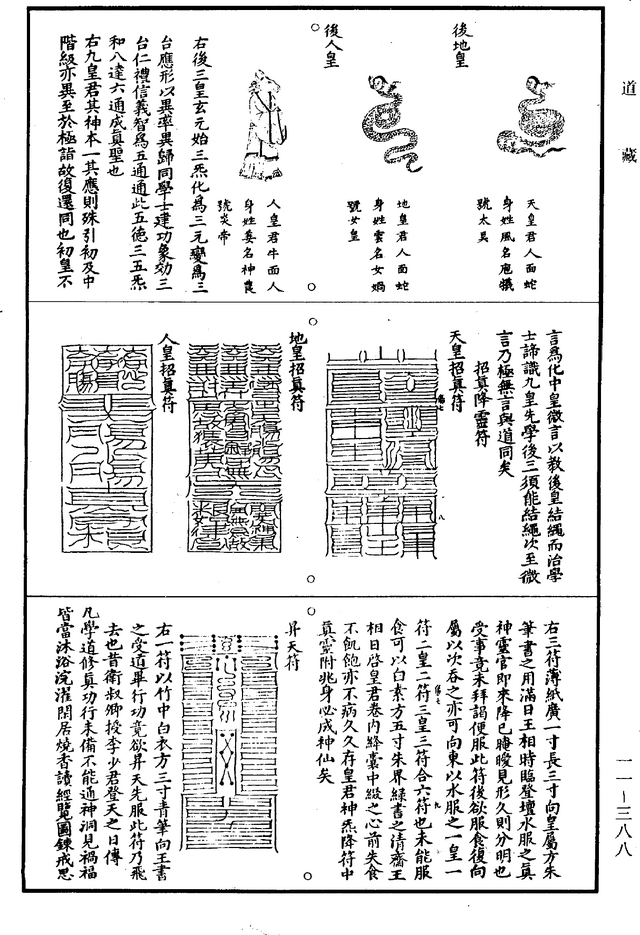 道藏
後地皇
天皇君人面蛇
身姓風名庖犧
號太昊
後人皇
地皇君人面蛇
身姓雲名女媧
號女皇
人皇君牛面人
身姓姜名神農
號炎帝
右後三皇玄元始三炁化為三元變為三
台應形以異率異歸同學士建功象効三
台仁禮信義智為五通通此五德三五炁
和八達六通成真聖也
右九皇君其神本一其應則殊引初及中
階級亦異至於極詣故復還同也初皇不
言為化中皇微言以教後皇結繩而治學
士諦識九皇先學後三須能結繩次至微
言乃極無言與道同矣
招真降靈符
天皇招真符
地皇招真符
人皇招真符
右三符薄紙廣一寸長三寸向皇屬方朱
筆書之用滿日王相時臨登壇水服之真
神靈官即來降已腌曖見形久則分明也
受事竟未拜謁便服此符後欲服食復向
屬以次吞之亦可向東以水服之一皇一
符二皇二符三皇三符合六符也未能服
食可以白素方五寸朱界綠書之清齋王
相日啓皇君卷內絳囊中綴之心前失食
不飢飽亦不病久久存皇君神炁降符中
真靈附兆身必成神仙矣
昇天符
右一符以竹中白衣方三寸青筆向王書
之受道畢行功竟欲昇天先服此符乃飛
去也昔衛叔卿授李少君登天之日傳
凡學道修真功行未備不能通神洞見禍福
皆當沐浴浣濯閑居燒香讀經覽圖鍊戒思
一一－三八八